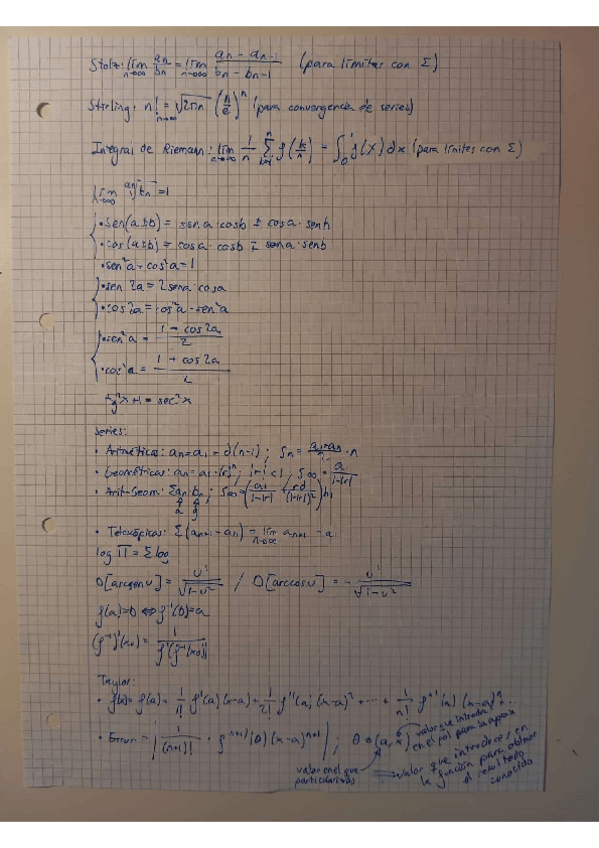 Stolz: lim n→∞ an/bn = lim n→∞ (an - an-1)/(bn - bn-1) (para límites con Σ)
Stirling: n! = √2πn (n/e)^n (para convergencia de series)
n→∞
Integral de Riemann: lim n→∞ 1/n Σ f(k/n) = ∫₀¹ f(x) dx (para límites con Σ)
lim n→∞ = 1
• sen(a±b) = sen a · cos b ± cos a · sen b
• cos(a±b) = cos a · cos b ∓ sen a · sen b
• sen²a + cos²a = 1
• sen 2a = 2 sen a · cos a
• cos 2a = cos²a - sen²a
• sen²a = (1 - cos 2a)/2
• cos²a = (1 + cos 2a)/2
tg²x + 1 = sec²x
Series:
• Aritméticas: an = a1 + d(n-1); Sn = (a1+an)/2 · n
• Geométricas: |r| < 1; S∞ = a1/(1-|r|)
• Arit-Geom: Σ an·bn; S∞ =
a g
• Telescópicas: Σ(an+1 - an) = lim n→∞ an+1 - a
log Π = Σ log
D[arcsen u] = u'/√1-u² / D[arccos u] = - u'/√1-u²
f(a)=b ⇔ f⁻¹(b)=a
(f⁻¹)'(x0) = 1/f'(f⁻¹(x0))
Taylor:
• f(x) = f(a) + 1/1! f'(a)(x-a) + 1/2! f''(a)(x-a)² + ... + 1/n! fⁿ(a)(x-a)ⁿ
• Error = |1/(n+1)! · f^(n+1)(θ)(x-a)^(n+1)| ; θ ∈ (a, x)
valor que introduc.
en el pol para la aprox
valor en el que
particularizas
valor que introduces en
la función para obtener
el resultado
conocido